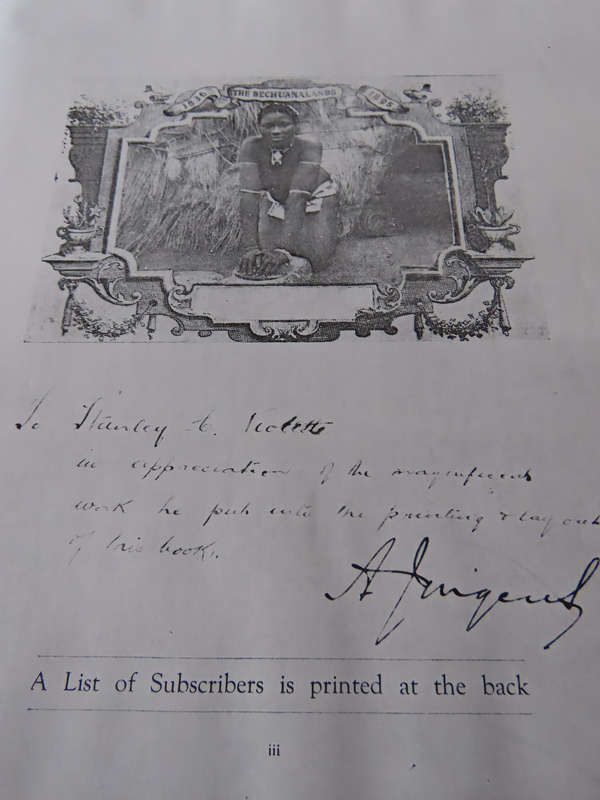 THE BECHUANALANDS
To Stanley A. Violett
in appreciation of the magnificent
work he put into the printing & layout
of this book.
A Jurgens
A List of Subscribers is printed at the back
iii